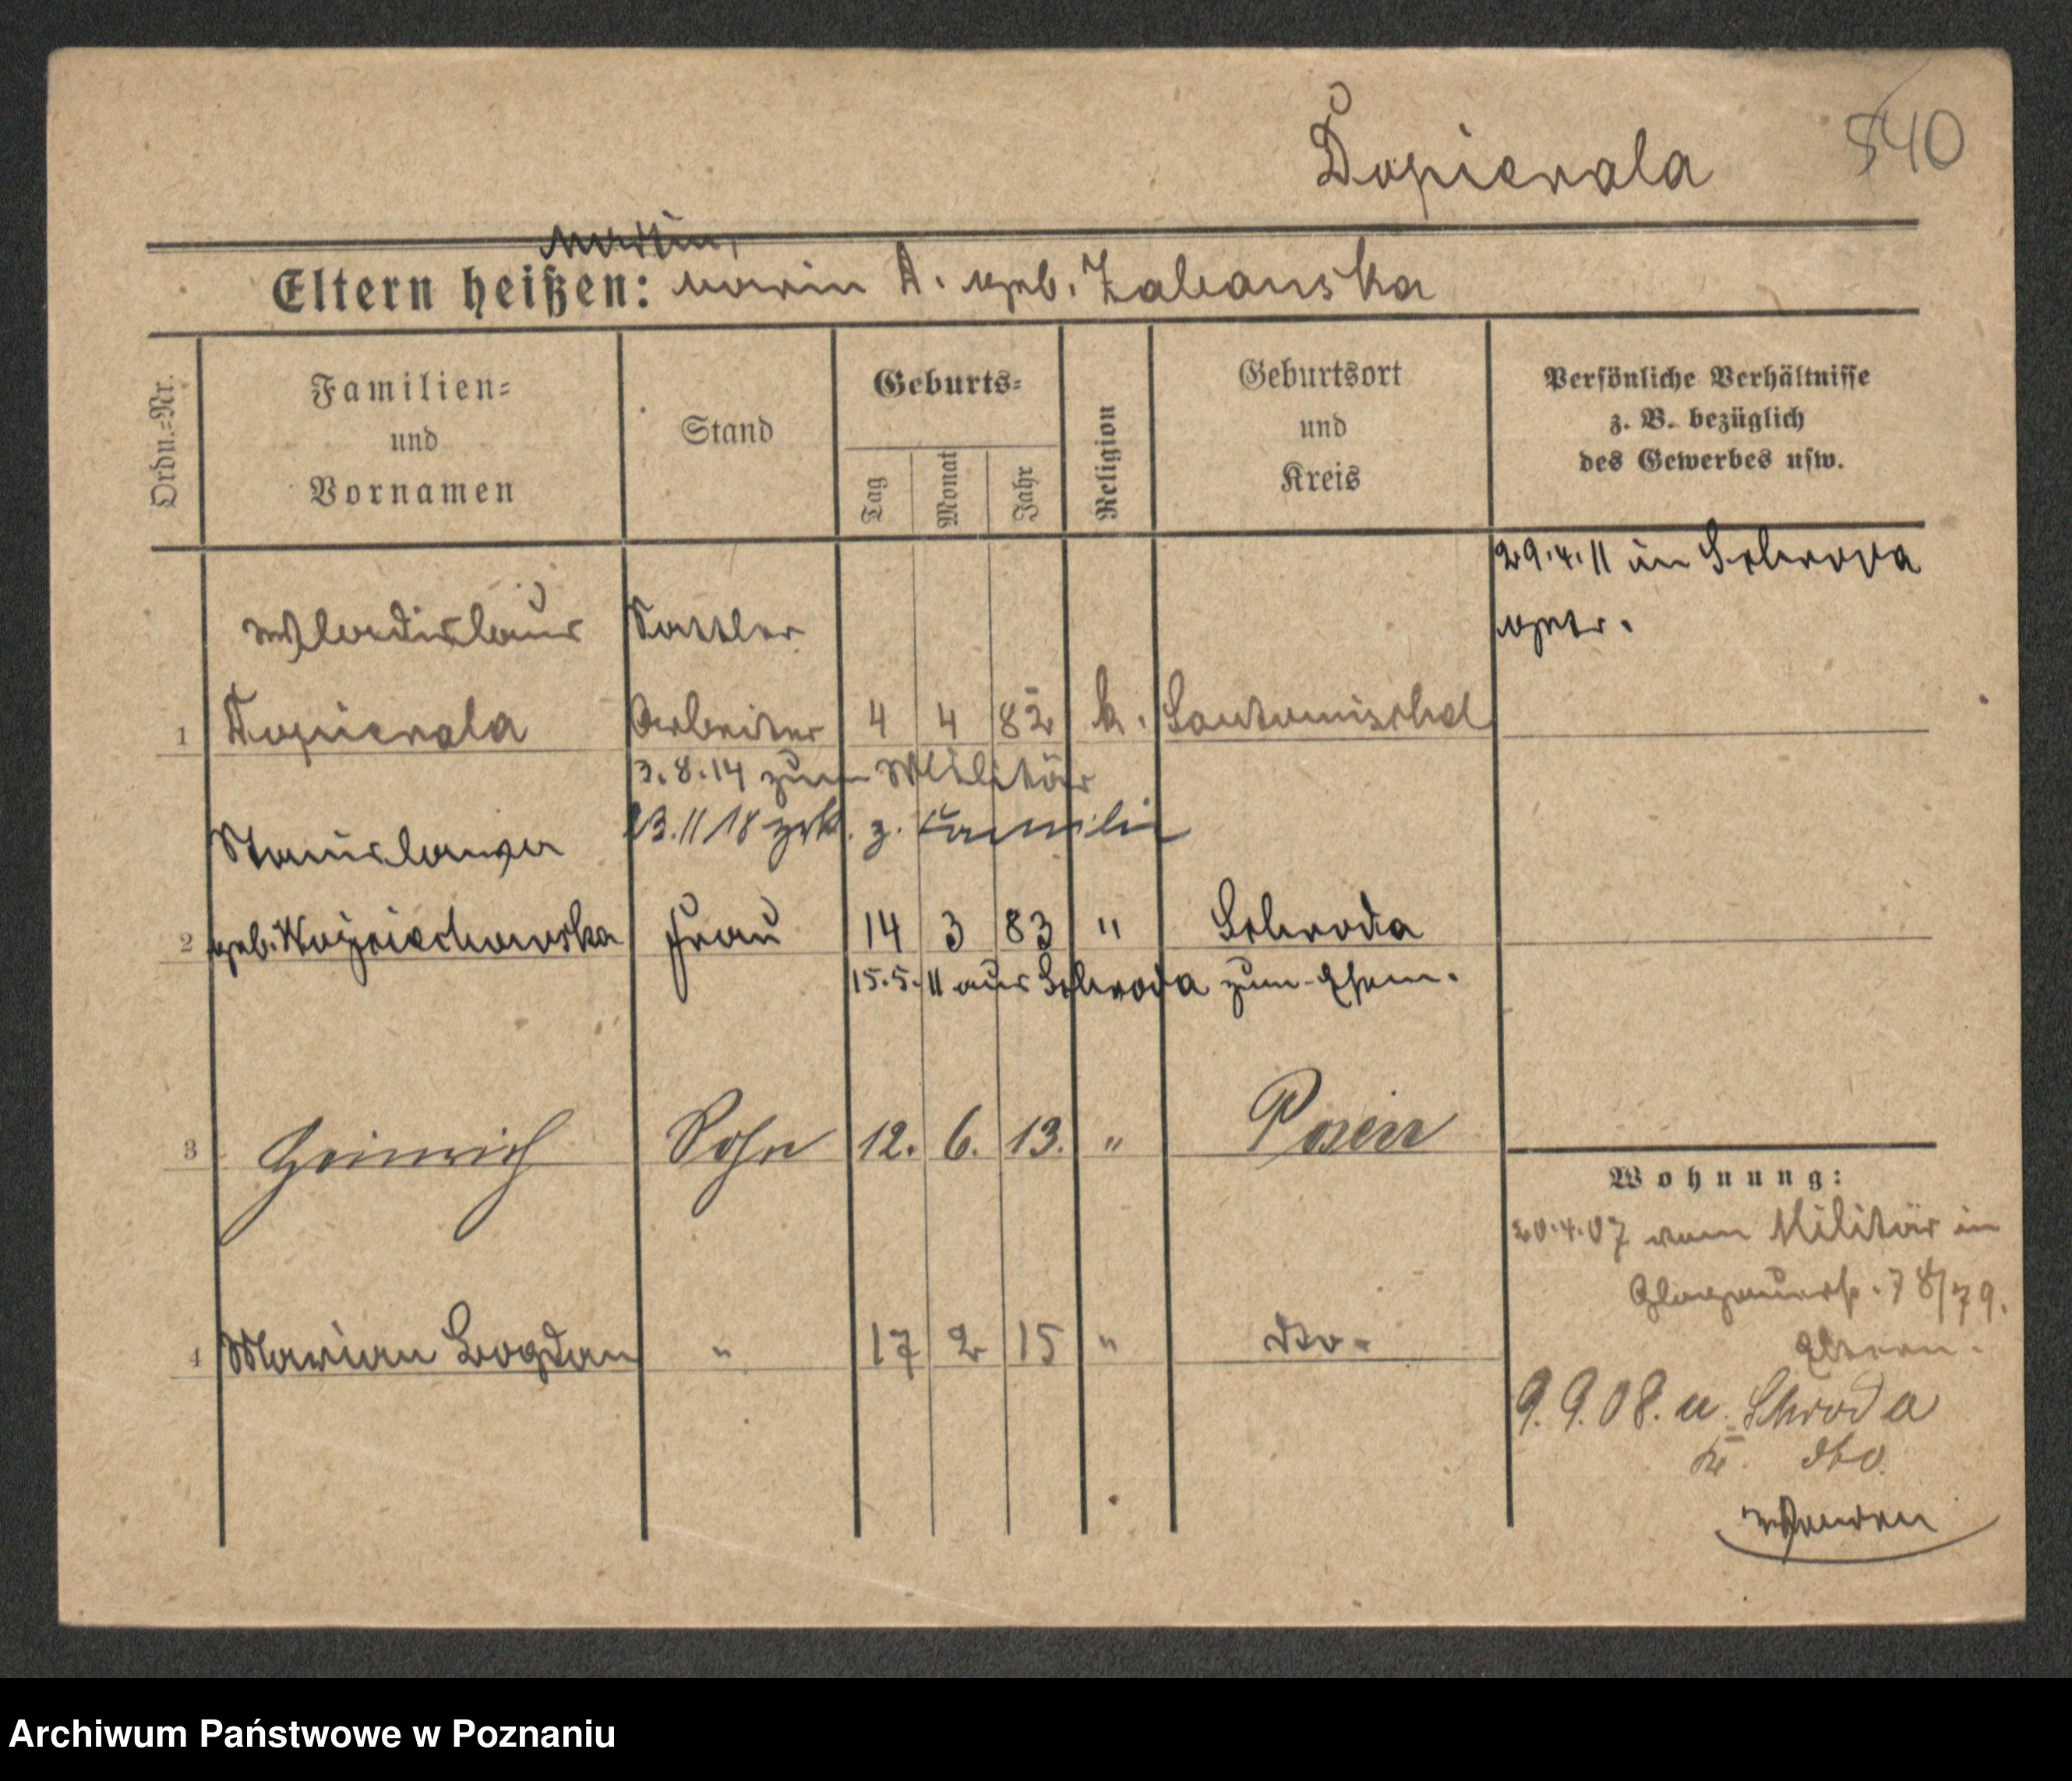 Dopierala
840
Martin,
Eltern heißen: Marie A. geb. Zalianska
Ordn.-Nr.
Familien-
und
Vornamen
Stand
Geburts-
Tag
Monat
Jahr
Religion
Geburtsort
und
Kreis
Persönliche Verhältnisse
z. B. bezüglich
des Gewerbes usw.
29.4.11 in Schroda
getr.
Wladislaus Sattler
1 Dopierala Arbeiter 4 4 82 k. Santomischel
3.8.14 zum Militär
23.11 18 zrk. z. Familie
Stanislawa
2 geb. Wojciechowska Frau 14 3 83 " Schroda
15.5.11 aus Schroda zum Ehem.
3 Heinrich Sohn 12. 6. 13. " Posen
4 Marian Bogdan " 17 2 15 " dto.
Wohnung:
20.4.07 vom Militär in
Glogauerstr. 78/79.
Eltern.
9.9.08. n. Schroda
K. dto.
Wenden
Archiwum Państwowe w Poznaniu